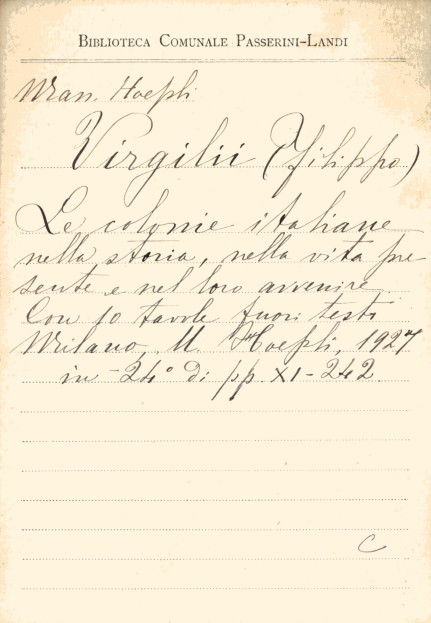 BIBLIOTECA COMUNALE PASSERINI-LANDI
Man. Hoepli
Virgilii (Filippo)
Le colonie italiane
nella storia, nella vita pre
sente e nel loro avvenire
Con 10 tavole fuori testo
Milano, U. Hoepli, 1927
in -24° di pp. XI-242.
C